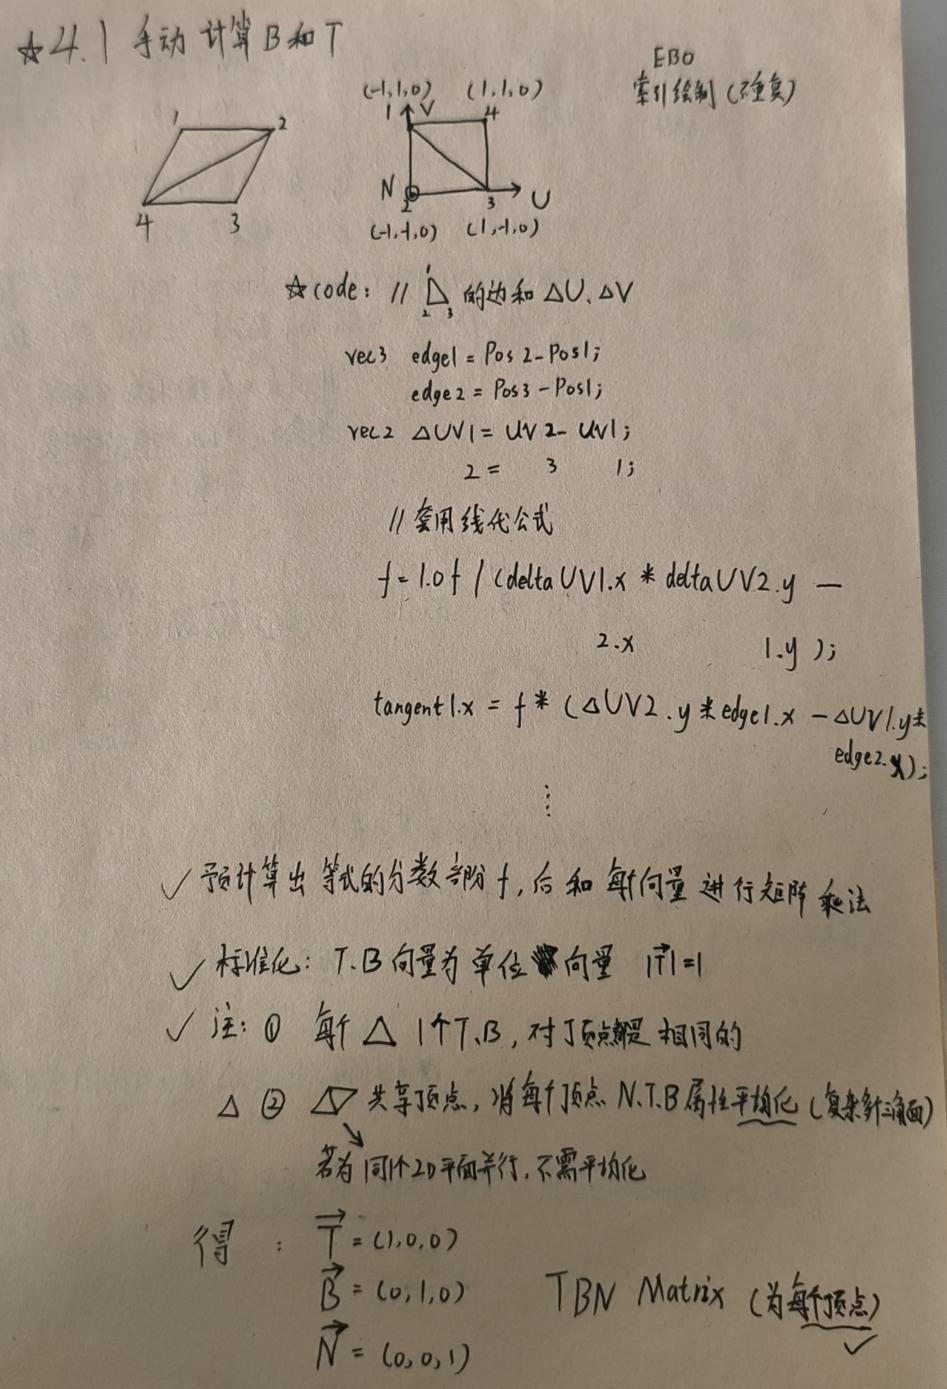 ☆4.1 手动计算B和T
EBO
索引绘制(不重复)
1 2
4 3
(-1,1,0) (1,1,0)
1 V 4
N 2 3 U
(-1,-1,0) (1,-1,0)
☆code: // 1 2 3 的边和 ΔU、ΔV
vec3 edge1 = Pos2-Pos1;
edge2 = Pos3-Pos1;
vec2 ΔUV1 = UV2-UV1;
2 = 3 1;
// 套用线代公式
f = 1.0f / (deltaUV1.x * deltaUV2.y —
2.x 1.y );
tangent1.x = f * (ΔUV2.y * edge1.x - ΔUV1.y *
edge2.x);
⋮
✓ 预计算出等式的分数部份f, 后和每个向量进行矩阵乘法
✓ 标准化: T.B向量为单位向量 |T⃗|=1
✓ 注: ① 每个 △ 1个T.B, 对顶点都是相同的
△ ② 共享顶点, 将每个顶点 N.T.B属性平均化 (复杂多个三角面)
若为同1个2D平面并行, 不需平均化
得: T⃗ = (1,0,0)
B⃗ = (0,1,0) TBN Matrix (为每个顶点) ✓
N⃗ = (0,0,1)